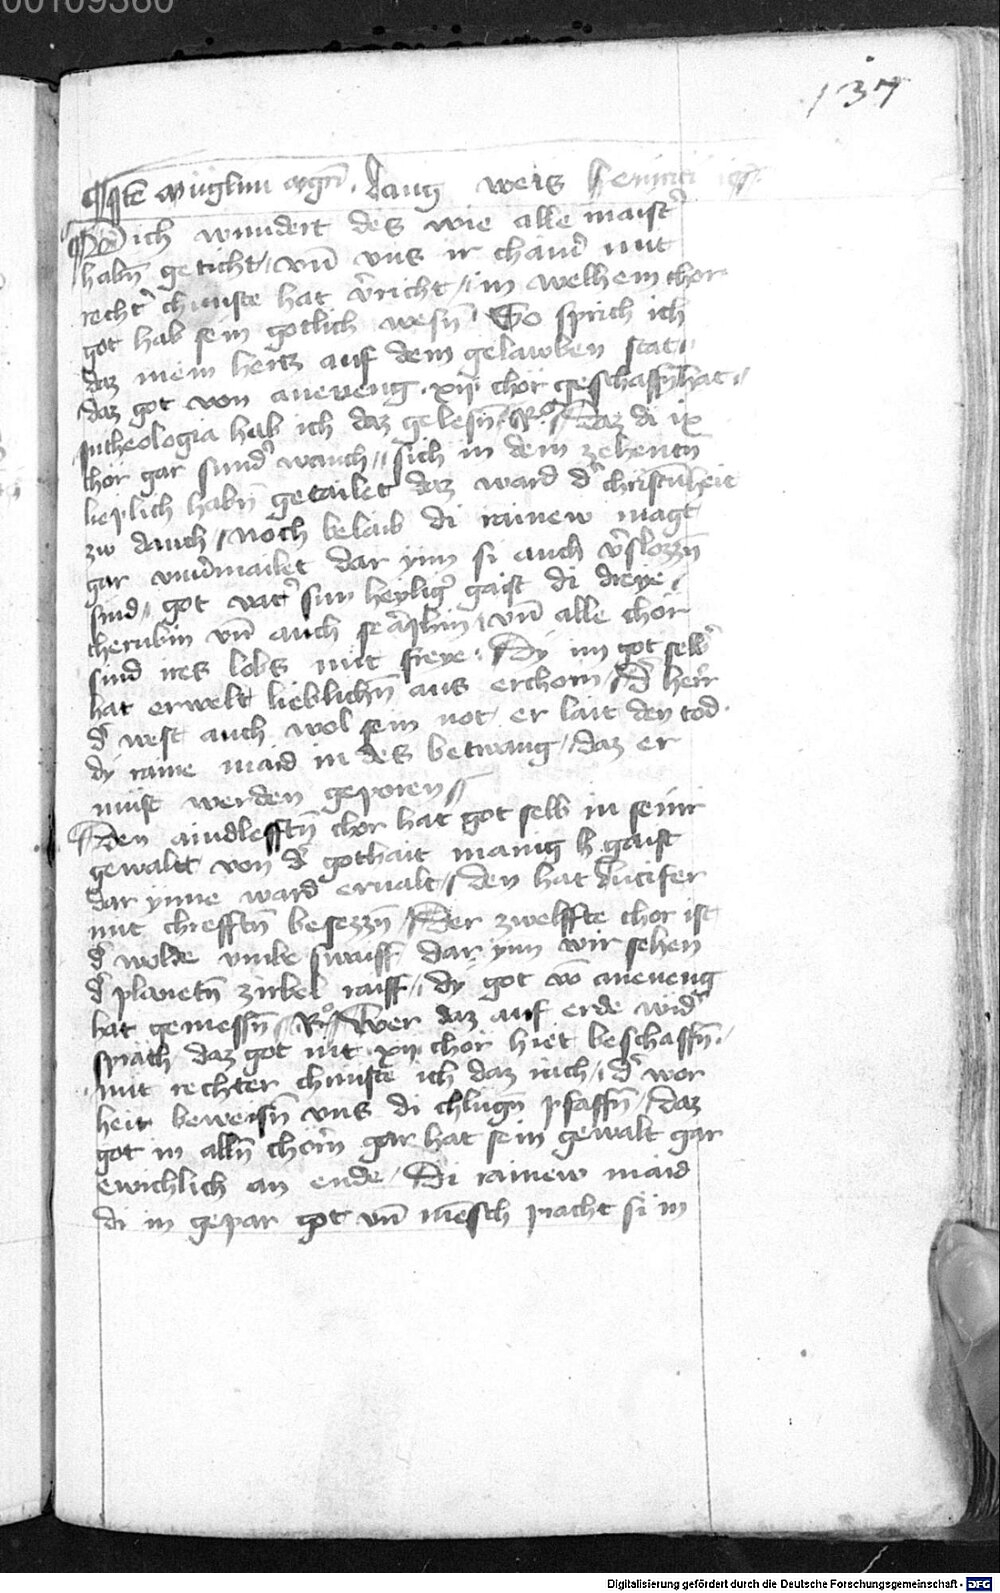 00109360
137
Itē Müglinn aygñ. Lang weis
Mich wundert des wie alle maist̓
habñ geticht / vnd vns ir chainr̓ mit
recht̓ chunste hat v̓richt / in welhem chor
got hab sein gotlich wesñ / So sprich ich
daz mein hertz auf dem gelawben stat //
daz got von aneueng xij chör geschaffñ hat //
In theologia hab ich daz gelesñ / Ro / Daz di ix
chör gar sund̓ wanch // sich in dem zehentñ
lieplich habñ getailet daz ward d̓ christñheit
zw danch / Noch belaib di rainew magt
gar vnu̓mailet dar ynn si auch v̓slozzñ
sind / got vat̓ sun heylig̓ gaist di dreye /
cherubin vñ auch seraphin / vñ alle chör
sind ires lobs mit freye / Dy im got selb̓
hat erwelt lieblichñ aus erchorn / D̓ herr
d̓ west auch wol sein not er lait den tod
dy raine maid in des betwang / daz er
must werden geporen //
Den aindlefftñ chor hat got selb in seinr
gewalt von d̓ gothait manig h. gaist
dar ynne ward ervalt / den hat lucifer
mit chrefftñ besezzñ / Der zwelffte chor ist
d̓ wolde vmbe swaiff dar ynn wir sehen
d̓ planetñ zirkel raiff / dy got vō aneueng
hat gemessñ / Ro / Wer daz auf erde wid̓
sprach daz got nit xij chör hiet beschaffñ /
mit rechter chunste ich daz rich / d̓ wor
heit beweisñ vns di chlugñ pfaffñ / daz
got in allñ chörñ gar hat sein gewalt gar
ewichlich an ende / Di rainew maid
di in gepar got vñ mēsch pracht si in
Digitalisierung gefördert durch die Deutsche Forschungsgemeinschaft - DFG